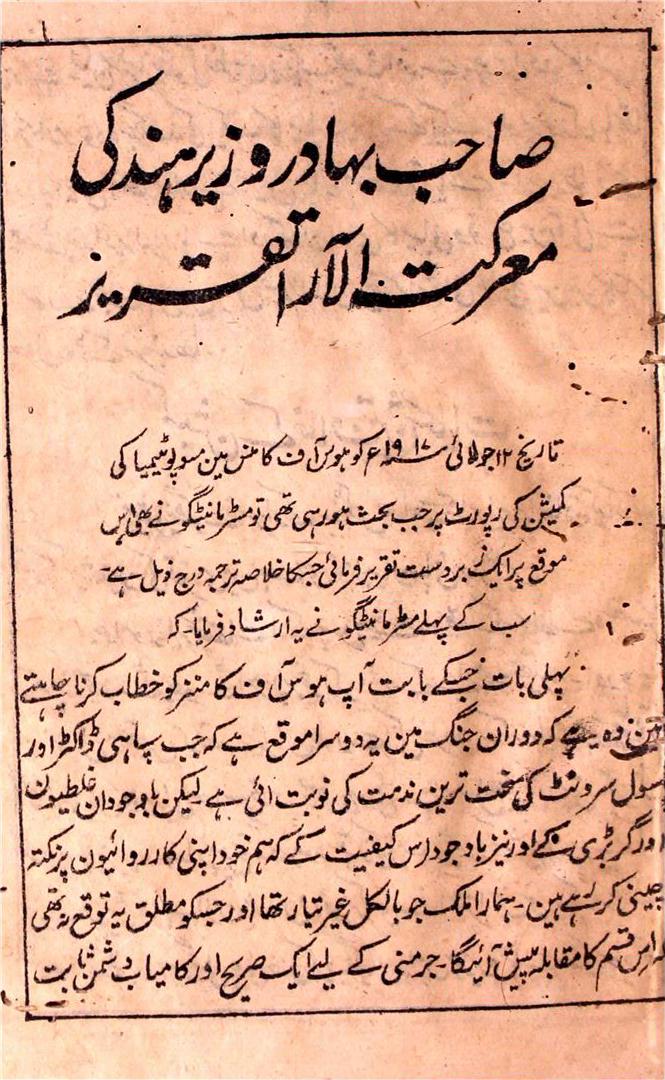 صاحب بہادر وزیر ہند کی
معرکتہ الآرا تقریر
تاریخ ۱۲ جولائی سنہ ۱۹۱۷ع کو ہوس آف کامنس مین مسوپوٹیمیا کی
کمیشن کی رپورٹ پر جب بحث ہو رہی تھی تو مسٹر مانٹیگو نے بھی اس
موقع پر ایک زبردست تقریر فرمائی جسکا خلاصہ ترجمہ درج ذیل ہے۔
سب کے پہلے مسٹر مانٹیگو نے یہ ارشاد فرمایا۔ کہ
پہلی بات جسکے بابت آپ ہوس آف کامنز کو خطاب کرنا چاہتے
ہین وہ یہ ہے کہ دوران جنگ مین یہ دوسرا موقع ہے کہ جب سپاہی ڈاکٹر اور
سول سرونٹ کی سخت ترین مذمت کی نوبت آئی ہے لیکن باوجود ان غلطیون
اور گڑبڑی کے اور نیز باوجود اس کیفیت کے کہ ہم خود اپنی کارروائیون پر نکتہ
چینی کر رہے ہین۔ ہمارا ملک جو بالکل غیر تیار تھا اور جسکو مطلق یہ توقع نہ تھی
کہ اس قسم کا مقابلہ پیش آئیگا۔ جرمنی کے لیے ایک صریح اور کامیاب دشمن ثابت